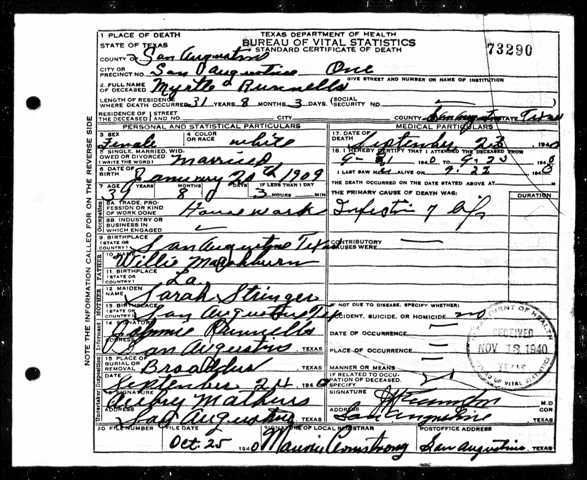 TEXAS DEPARTMENT OF HEALTH
BUREAU OF VITAL STATISTICS
STANDARD CERTIFICATE OF DEATH
73290
1 PLACE OF DEATH
STATE OF TEXAS
COUNTY OF San Augustine
CITY OR PRECINCT NO. San Augustine One
GIVE STREET AND NUMBER OR NAME OF INSTITUTION
2. FULL NAME OF DECEASED Myrtle Runnells
LENGTH OF RESIDENCE WHERE DEATH OCCURRED 31 YEARS 8 MONTHS 3 DAYS (SOCIAL SECURITY NO.
RESIDENCE OF THE DECEASED STREET AND NO. CITY COUNTY San Augustine Texas
PERSONAL AND STATISTICAL PARTICULARS
MEDICAL PARTICULARS
3 SEX Female
4 COLOR OR RACE white
17 DATE OF DEATH September 23 1940
5 SINGLE, MARRIED, WIDOWED OR DIVORCED (WRITE THE WORD) Married
18. I HEREBY CERTIFY THAT I ATTENDED THE DECEASED FROM
1940 TO 9-23 1940
6 DATE OF BIRTH January 20th 1909
I LAST SAW H ALIVE ON 9-22 1940
7 AGE YEARS MONTHS DAYS IF LESS THAN 1 DAY
8 3 HOURS MIN
THE DEATH OCCURRED ON THE DATE STATED ABOVE AT M
THE PRIMARY CAUSE OF DEATH WAS:
DURATION
8A. TRADE, PROFESSION OR KIND OF WORK DONE House work
Infection of
8B. INDUSTRY OR BUSINESS IN WHICH ENGAGED
9 BIRTHPLACE (STATE OR COUNTRY) San Augustine Texas
CONTRIBUTORY CAUSES WERE
10 NAME Willie
11 BIRTHPLACE (STATE OR COUNTRY) La
12 MAIDEN NAME Sarah Stringer
13 BIRTHPLACE (STATE OR COUNTRY) San Augustine Tex
IF NOT DUE TO DISEASE, SPECIFY WHETHER:
ACCIDENT, SUICIDE, OR HOMICIDE no
14 SIGNATURE Runnells
DATE OF OCCURRENCE
San Augustine TEXAS
PLACE OF OCCURRENCE
15 PLACE OF BURIAL OR REMOVAL Broaddus TEXAS
MANNER OR MEANS
DATE September 24 1940
IF RELATED TO OCCUPATION OF DECEASED, SPECIFY
16 SIGNATURE Mathews
SIGNATURE M.D.
San Augustine TEXAS
San Augustine TEXAS
20 FILE NUMBER
FILE DATE Oct 25 1940
SIGNATURE OF LOCAL REGISTRAR Armstrong
POSTOFFICE ADDRESS San Augustine, TEXAS
DEPARTMENT OF HEALTH
RECEIVED
NOV 18 1940
TEXAS
BUREAU OF VITAL STATISTICS
NOTE THE INFORMATION CALLED FOR ON THE REVERSE SIDE
Occupation
FATHER
MOTHER
Informant
Undertaker